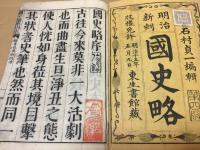 明治
新刻
石村貞一編輯
國史略
版權免許
東生書館藏
國史略序
古往今來莫非一大活劇
而曲盡生旦淨丑之態
使人恍如身莅其境目擊
其狀者史筆也然而同一